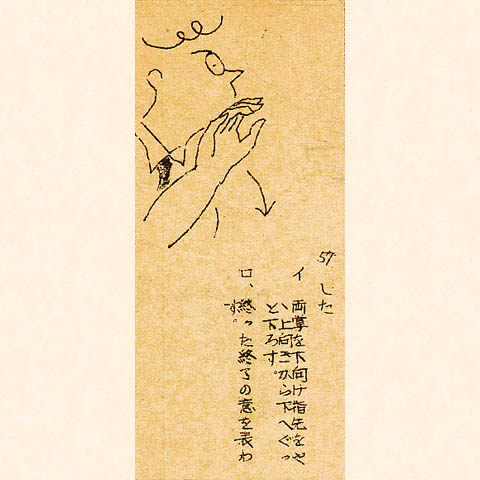 57 した
イ 両掌を下向け指先をや
ゝ上向きから下へぐっ
と下ろす。
ロ、終った終了の意を表わ
す。